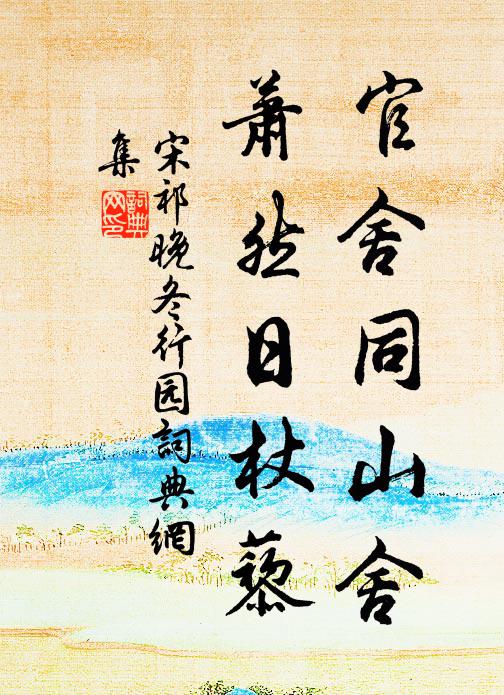 官舍同山舍
萧然日杖藜
宋祁晚冬行园詞典網
集
詞典網印